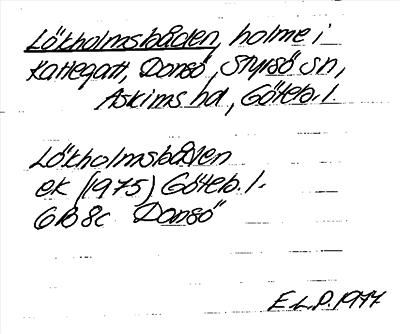 Lökholmsbåden, holme i
Kattegatt, Donsö, Styrsö sn,
Askims hd, Göteb. l.
Lökholmsbåden
ek (1975) Göteb. l.
6B8c Donsö
E.L.P. 1977